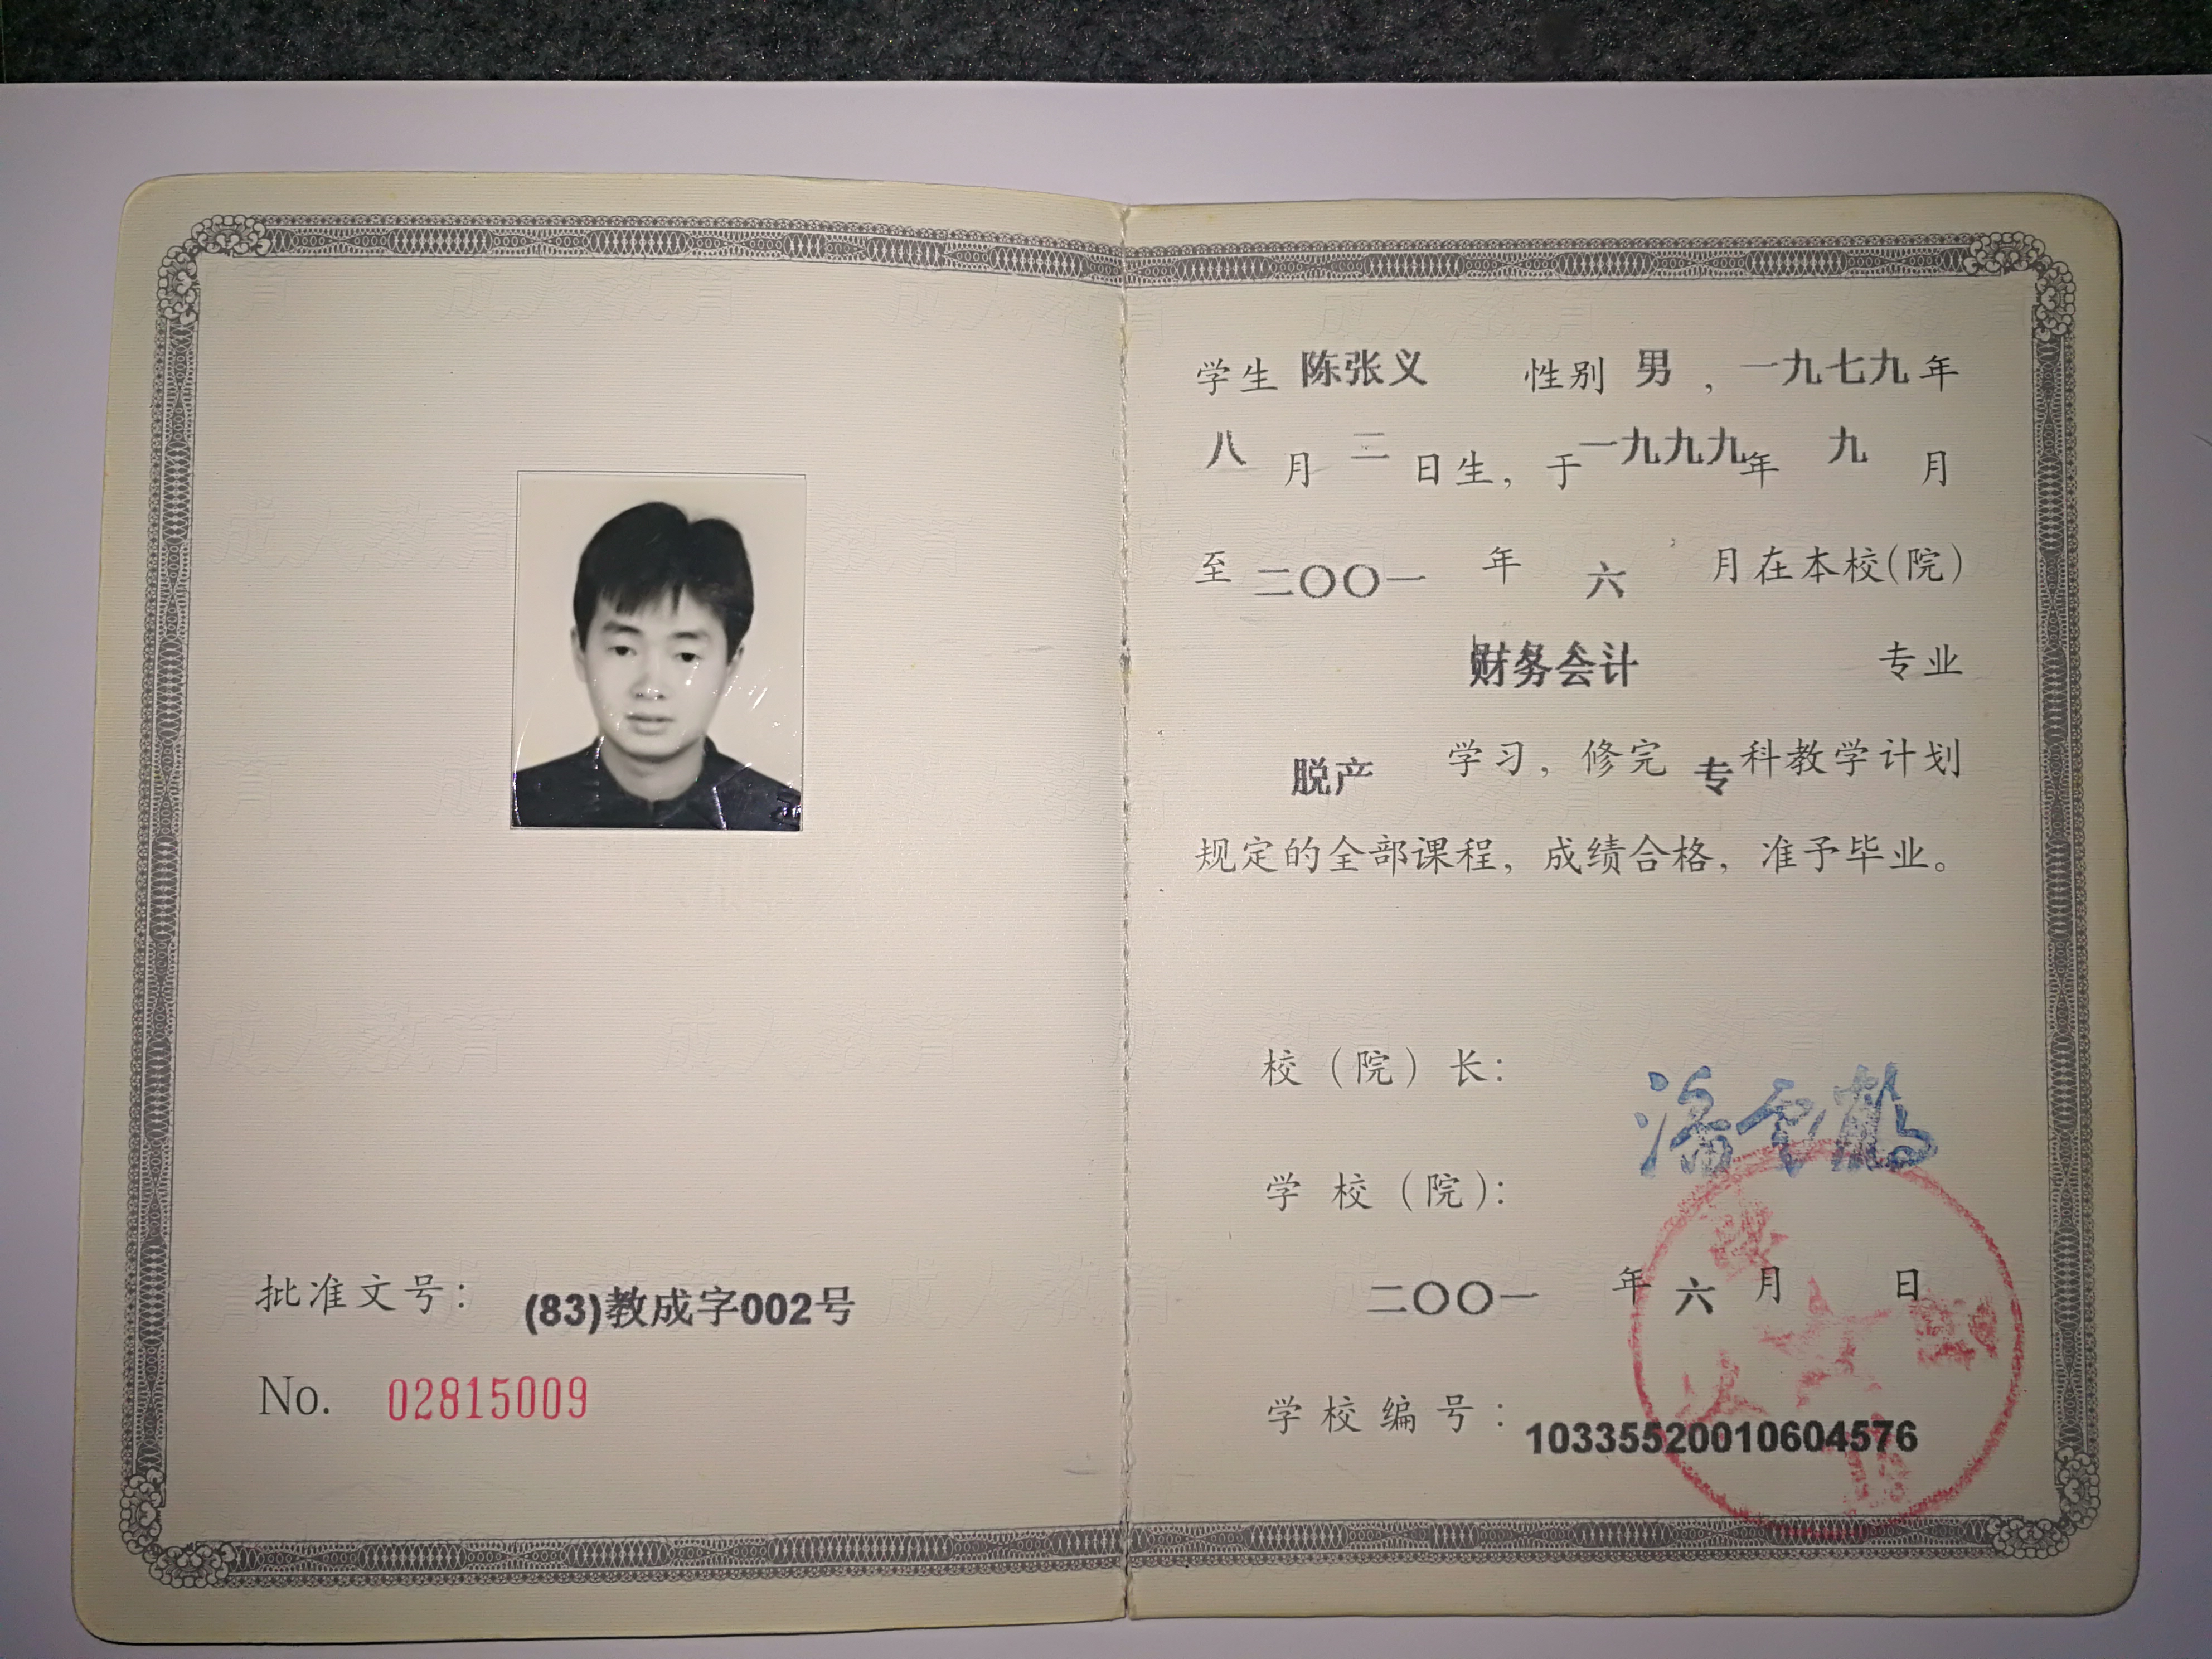 批准文号：(83)教成字002号
No. 02815009
学生 陈张义 性别 男，一九七九年
八月二日生，于一九九九年九月
至二〇〇一年六月在本校(院)
财务会计 专业
脱产 学习，修完专科教学计划
规定的全部课程，成绩合格，准予毕业。
校（院）长：潘云鹤
学校（院）：
二〇〇一年六月 日
学校编号：10335520010604576
成人教育